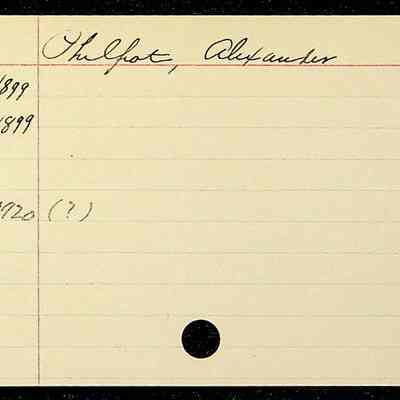 Philpot, Alexander
1899
1899
1920 (?)